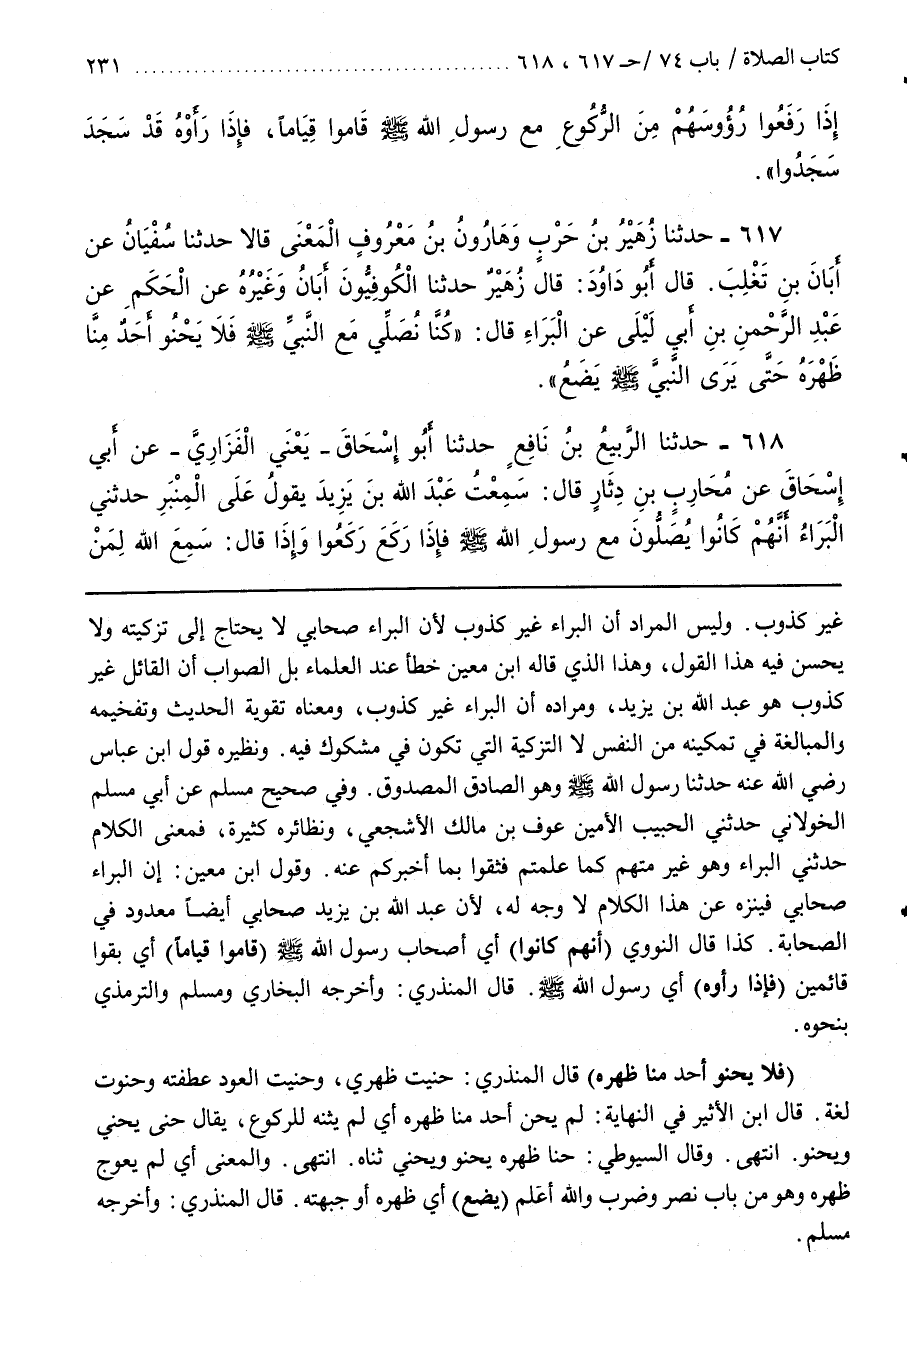 كتاب الصلاة / باب ٧٤ /حـ ٦١٧ ، ٦١٨ ........................................ ٢٣١
إِذَا رَفَعُوا رُؤُوسَهُمْ مِنَ الرُّكُوعِ مع رسولِ الله ﷺ قَاموا قِيَاماً، فإِذَا رَأَوْهُ قَدْ سَجَدَ
سَجَدُوا».
٦١٧ ـ حدثنا زُهَيْرُ بنُ حَرْبٍ وَهَارُونُ بنُ مَعْرُوفٍ الْمَعْنَى قالا حدثنا سُفْيَانُ عن
أَبَانَ بنِ تَغْلِبَ. قال أَبُو دَاوُدَ: قال زُهَيْرٌ حدثنا الْكُوفِيُّونَ أَبَانُ وَغَيْرُهُ عن الْحَكَمِ عن
عَبْدِ الرَّحْمنِ بنِ أَبي لَيْلَى عن الْبَرَاءِ قال: «كُنَّا نُصَلِّي مَع النَّبيِّ ﷺ فَلَا يَحْنُو أَحَدٌ مِنَّا
ظَهْرَهُ حَتَّى يَرَى النَّبيَّ ﷺ يَضَعُ».
٦١٨ ـ حدثنا الرَّبِيعُ بنُ نَافِعٍ حدثنا أَبُو إِسْحَاقَ ـ يَعْنَي الْفَزَارِيَّ ـ عن أَبي
إِسْحَاقَ عن مُحَارِبِ بنِ دِثَارٍ قال: سَمِعْتُ عَبْدَ الله بنَ يَزِيدَ يقولُ عَلَى الْمِنْبَرِ حدثني
الْبَرَاءُ أَنَّهُمْ كَانُوا يُصَلُّونَ مع رسولِ الله ﷺ فإِذَا رَكَعَ رَكَعُوا وَإِذَا قال: سَمِعَ الله لِمَنْ
غير كذوب. وليس المراد أن البراء غير كذوب لأن البراء صحابي لا يحتاج إلى تزكيته ولا
يحسن فيه هذا القول، وهذا الذي قاله ابن معين خطأ عند العلماء بل الصواب أن القائل غير
كذوب هو عبد الله بن يزيد، ومراده أن البراء غير كذوب، ومعناه تقوية الحديث وتفخيمه
والمبالغة في تمكينه من النفس لا التزكية التي تكون في مشكوك فيه. ونظيره قول ابن عباس
رضي الله عنه حدثنا رسول الله ﷺ وهو الصادق المصدوق. وفي صحيح مسلم عن أبي مسلم
الخولاني حدثني الحبيب الأمين عوف بن مالك الأشجعي، ونظائره كثيرة، فمعنى الكلام
حدثني البراء وهو غير متهم كما علمتم فثقوا بما أخبركم عنه. وقول ابن معين: إن البراء
صحابي فينزه عن هذا الكلام لا وجه له، لأن عبد الله بن يزيد صحابي أيضاً معدود في
الصحابة. كذا قال النووي (أنهم كانوا) أي أصحاب رسول الله ﷺ (قاموا قياماً) أي بقوا
قائمين (فإذا رأوه) أي رسول الله ﷺ. قال المنذري: وأخرجه البخاري ومسلم والترمذي
بنحوه.
(فلا يحنو أحد منا ظهره) قال المنذري: حنيت ظهري، وحنيت العود عطفته وحنوت
لغة. قال ابن الأثير في النهاية: لم يحن أحد منا ظهره أي لم يثنه للركوع، يقال حنى يحني
ويحنو. انتهى. وقال السيوطي: حنا ظهره يحنو ويحني ثناه. انتهى. والمعنى أي لم يعوج
ظهره وهو من باب نصر وضرب والله أعلم (يضع) أي ظهره أو جبهته. قال المنذري: وأخرجه
مسلم.